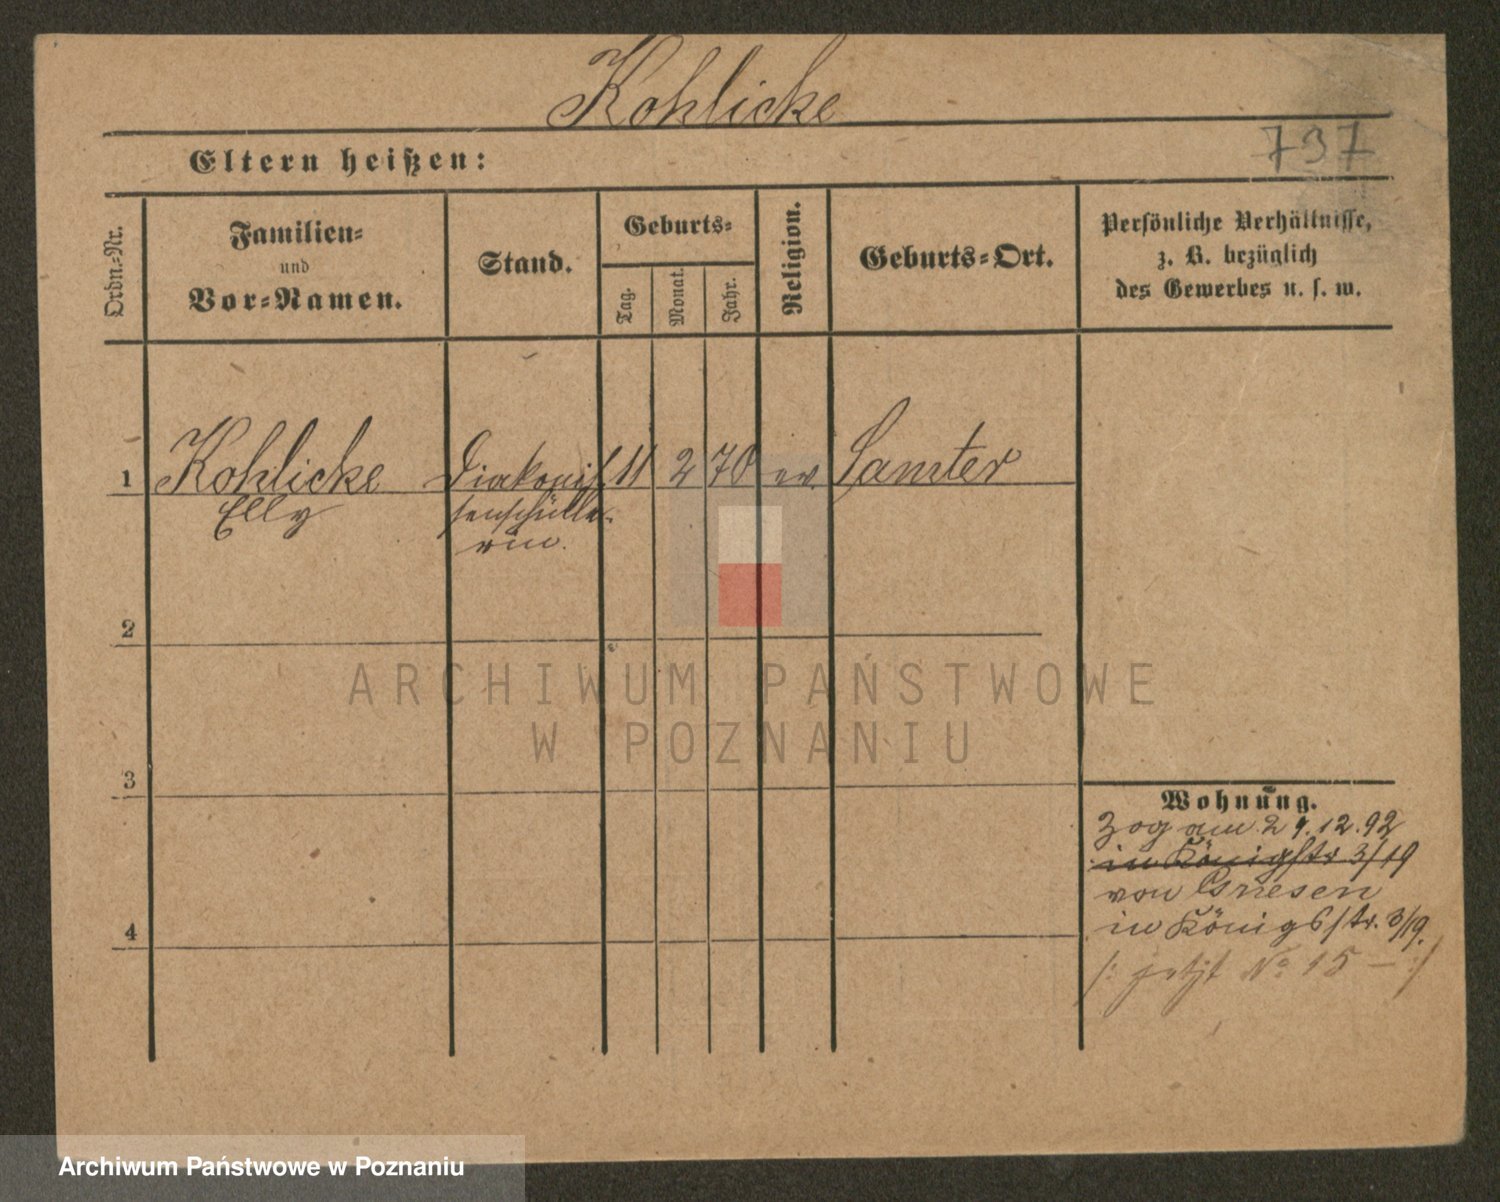 Kohlicke
737
Eltern heißen:
Ordn.-Nr.
Familien-
und
Vor-Namen.
Stand.
Geburts-
Tag.
Monat.
Jahr.
Religion.
Geburts-Ort.
Persönliche Verhältnisse,
z. B. bezüglich
des Gewerbes u. s. w.
1 Kohlicke Diakonis- 11 2 70 ev. Samter
Elly senschüle-
rin.
2
3
4
Wohnung.
Zog am 29.12.92
in Königstr 3/19
von Gnesen
in Königsstr. 3/19.
/: jetzt No 15 - :/
ARCHIWUM PAŃSTWOWE
W POZNANIU
Archiwum Państwowe w Poznaniu